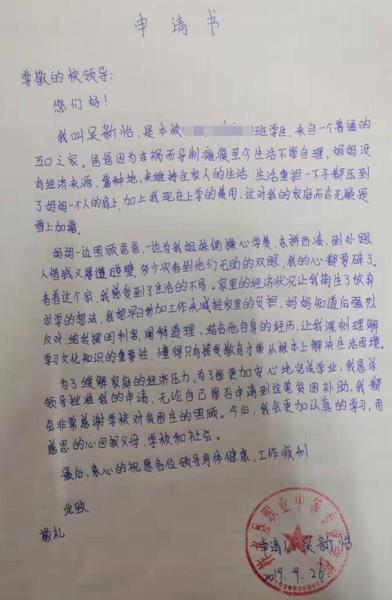 申请书
尊敬的校领导:
您们好!
我叫吴新怡,是本校班学生,来自一个普通的
五口之家。爸爸因为车祸而导制瘫痪至今生活不能自理,妈妈没
有经济来源,靠种地,来维持在家人的生活,生活重担一下子都压到
了妈妈一个人的肩上,加上我现在上学的费用,这对我的家庭而言无疑是
雪上加霜。
妈妈一边照顾爸爸,一边为我姐妹俩操心学费,东拼西凑,到处跟
人借钱又屡遭碰壁,多少次看到他们无助的双眼,我的心都要碎了。
看着这个家,我感受到了生活的不易。家里的经济状况让我萌生了放弃
求学的想法,我想早日参加工作来减轻家里的负担,妈妈知道后强烈
反对,给我摆明利害,阐释道理,结合他自身的经历,让我深刻理解
学习文化知识的重要性,懂得只有接受教育才能从根本上解决生活困境。
为了缓解家庭的经济压力,为了能更加安心地完成学业,我恳求
领导批准我的申请,无论自己能否申请到这笔贫困补助,我都
会非常感谢学校对贫困生的照顾。今后,我会更加认真的学习,用
感恩的心回报父母,学校和社会。
最后,衷心的祝愿各位领导身体健康,工作顺利
此致
敬礼
县职业中等专业学校
申请人吴新怡
2019.9.26